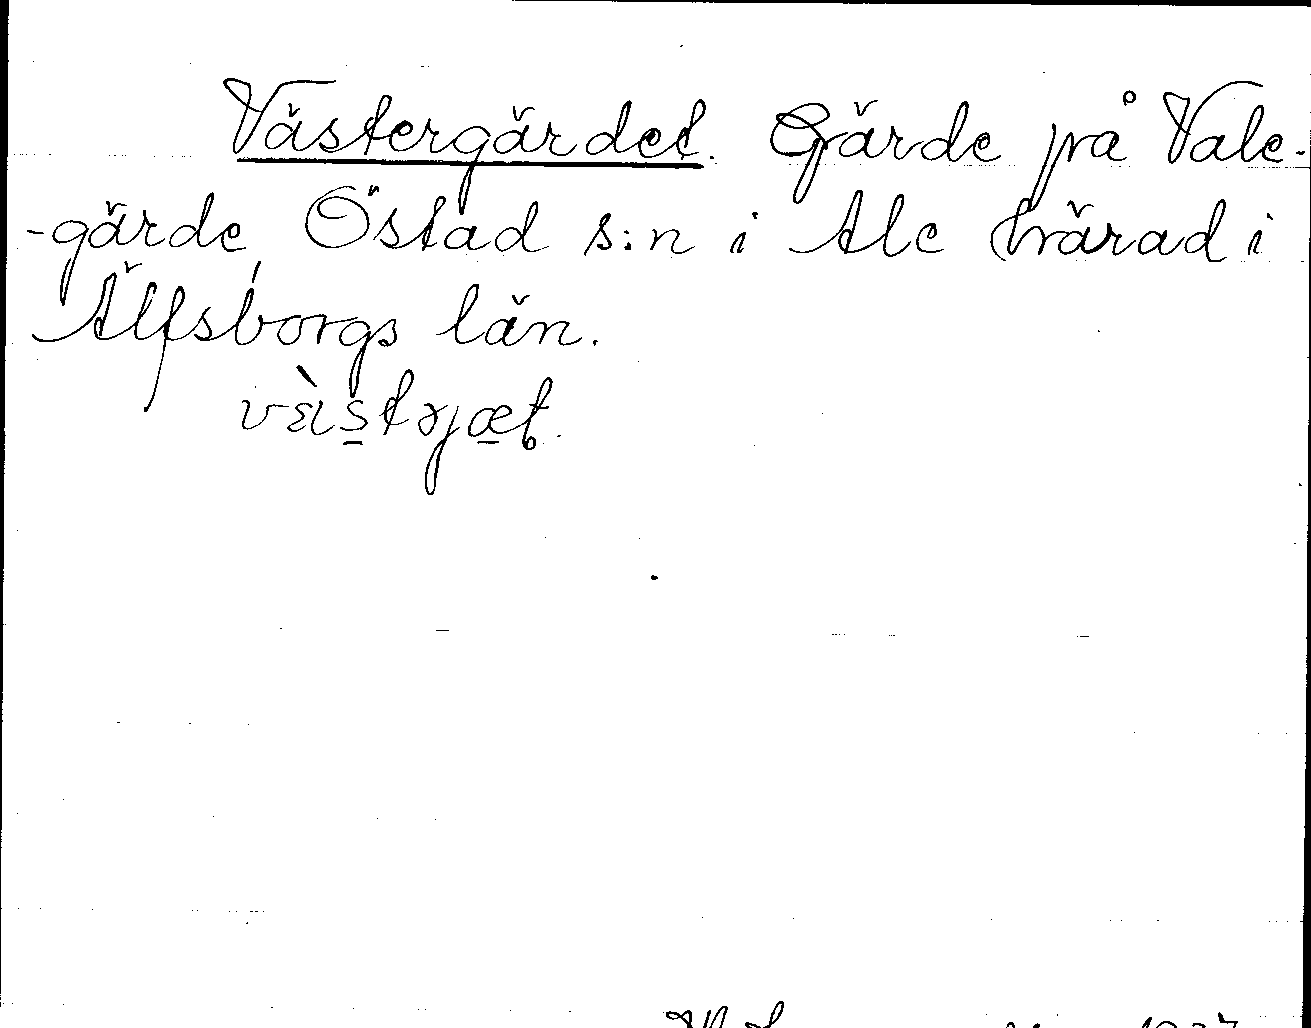 Västergärdet. Gärde på Vale-
-gärde, Östad s:n i Ale härad i
Älfsborgs län.